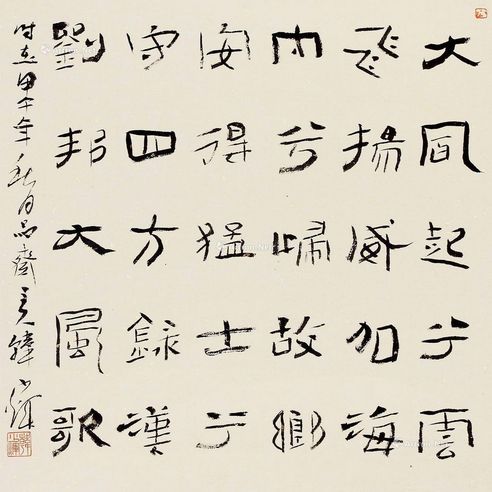 大風起兮雲
飛揚威加海
內兮歸故鄉
安得猛士兮
守四方錄漢
劉邦大風歌
时在甲午年秋月